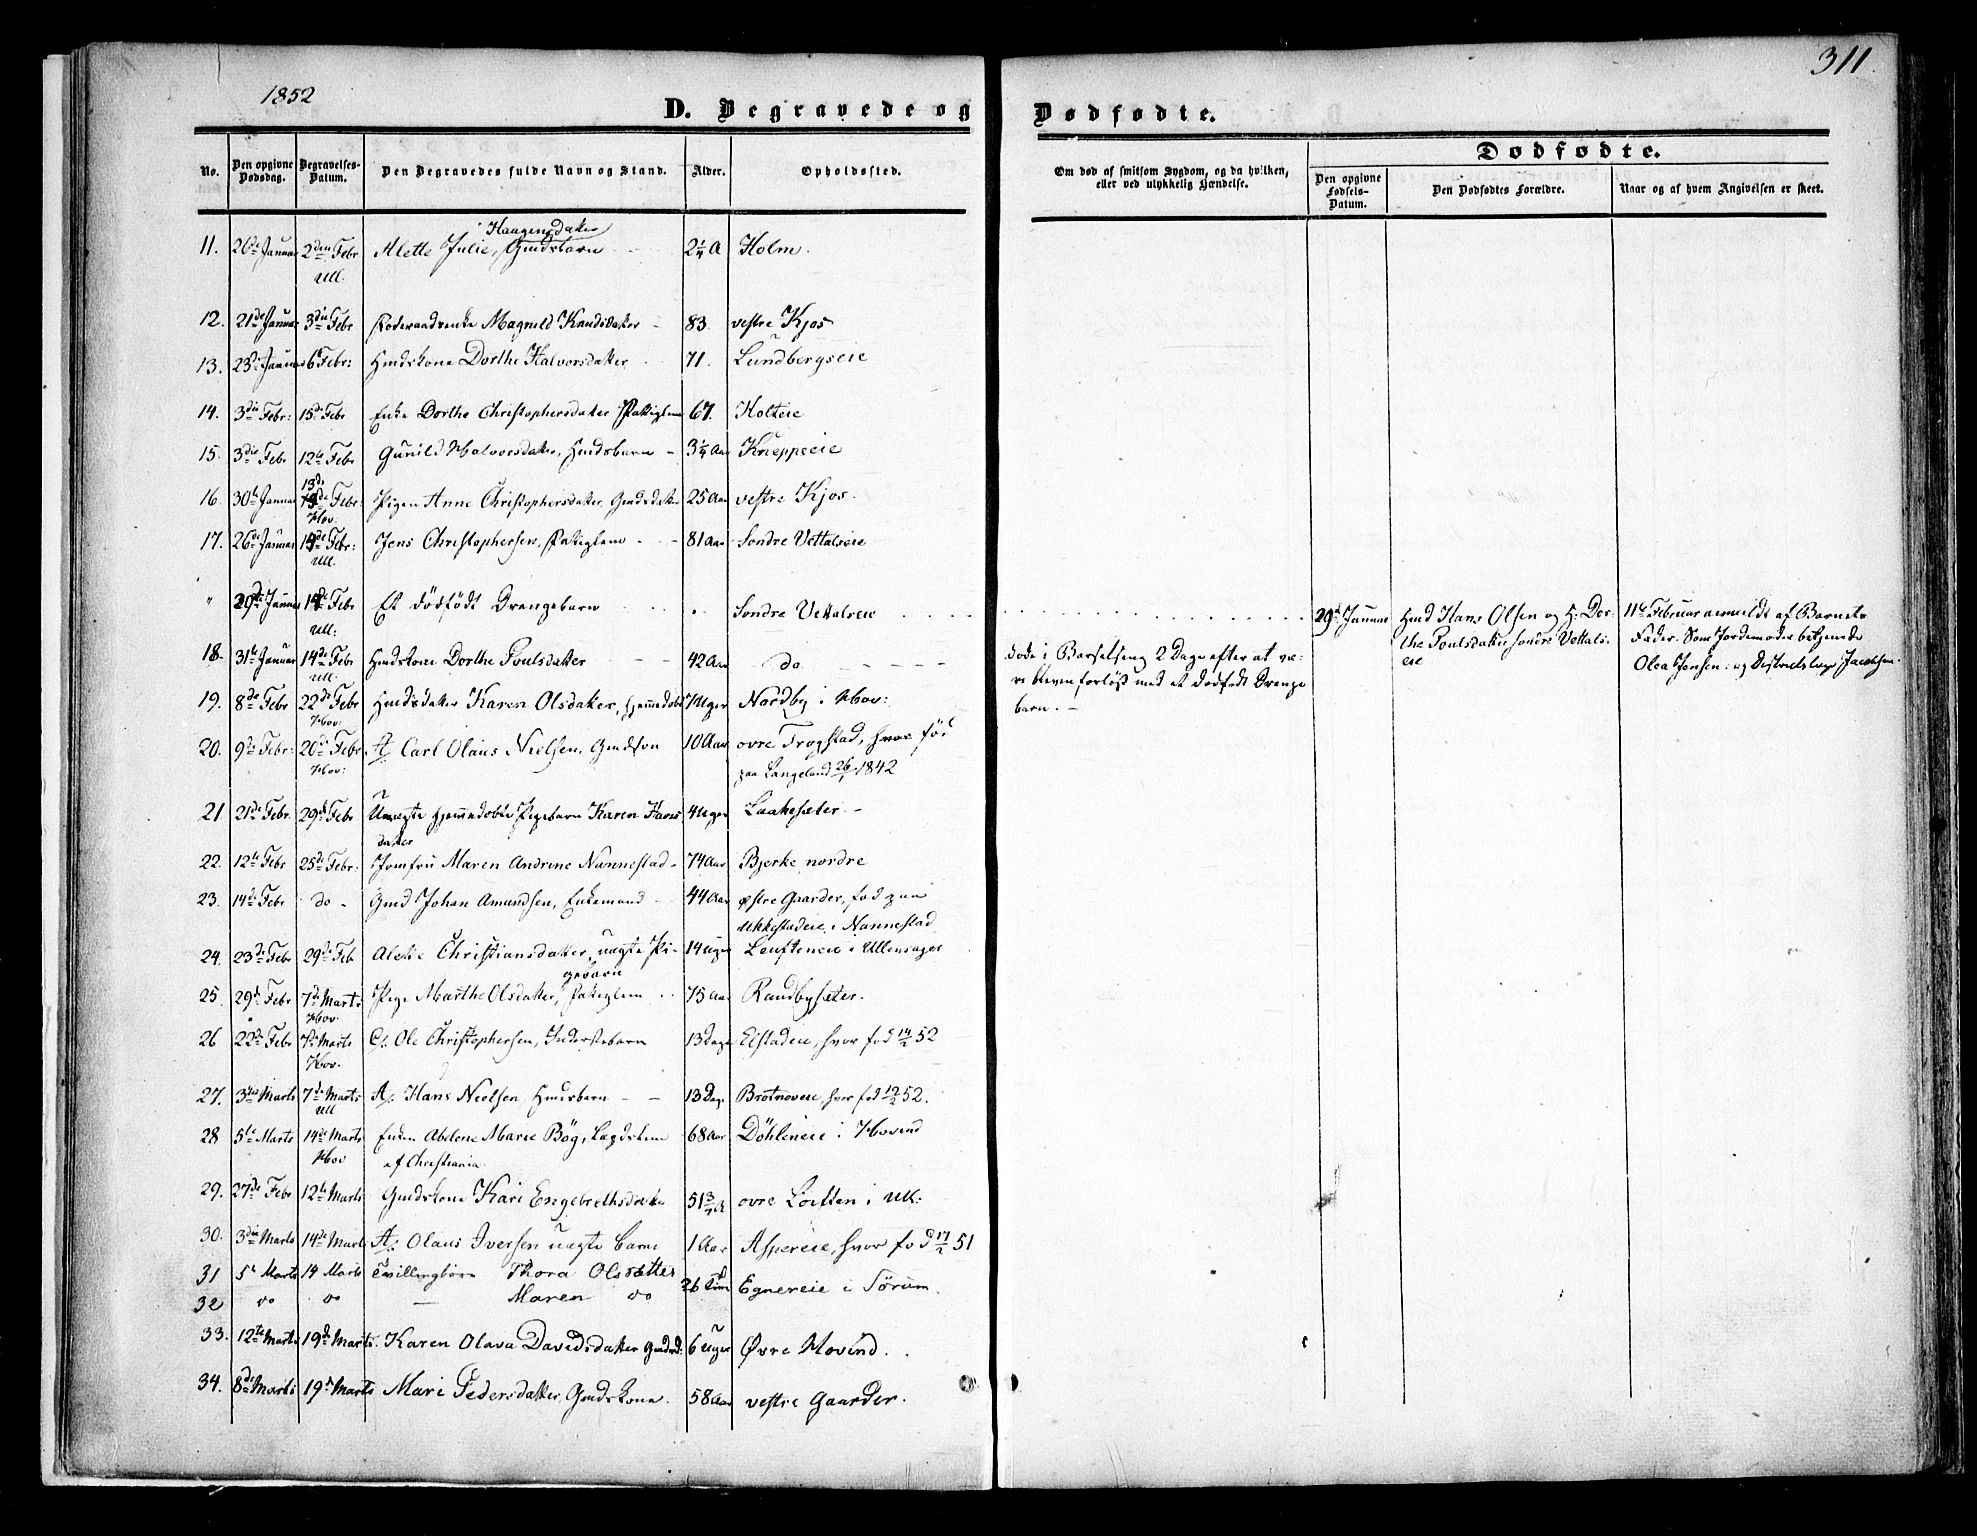 1852
311
D. Begravede og Dødfødte.
No. Den opgivne Dødsdag. Begravelses-Datum. Den Begravedes fulde Navn og Stand. Alder. Opholdssted.
Om død af smitsom Sygdom, og da hvilken, eller ved ulykkelig Hændelse.
Dødfødte.
Den opgivne Fødsels-Datum. Den Dødfødtes Forældre. Naar og af hvem Angivelsen er skeet.
Haagensdatter
11. 26de Januar 2den Febr Alette Julie, Gmdsbarn 2¼ A Holm.
Ull.
12. 21de Januar 3die Febr Magnild Knudsdatter 83. vestre Kjos
13. 23de Januar 6te Febr: Hmdskone Dorthe Halvorsdatter 71. Lundbergseie
14. 3die Febr: 15de Febr Enke Dorthe Christophersdatter Fattiglem 67. Holteie
15. 3die Febr 12te Febr Gunild Halvorsdatter, Hmdsbarn 3¼ Aar Kneppeie
16. 30te Januar 13de Febr: Pigen Anne Christophersdatter Gmdsdatter 25 Aar vestre Kjos.
Hov.
17. 26de Januar 14de Febr: Jens Christophersen, Fattiglem 81 Aar Søndre Vettalseie
Ull.
" 29de Januar 14de Febr Et dødfødt Drengebarn Søndre Vettalseie 29de Januar Hmd Hans Olsen og H: Dor- 11te Februar anmeldt af Barnets
Ull: the Poulsdatter søndre Vettals- Fader. Som Jordemoder betjente
eie Olea Jensen: og Districtslæge Jacobsen.
18. 31te Januar 14de Febr Hmdskone Dorthe Poulsdatter 42 Aar do døde i Barselseng 2 Dage efter at væ-
Ull. re bleven forløst med et dødfødt Drenge
barn. -
19. 8de Febr 22de Febr Hmdsdatter Karen Olsdatter, hjemmedøbt 7 Uger Nordby i Hov:
Hov:
20. 9de Febr: 20de Febr A/: Carl Olaus Nielsen, Gmdssøn 10 Aar øvre Trogstad, hvor fød
Hov: paa Langeland 26/1 1842
21 21de Febr. 29de Febr Uægte hjemmedøbt Pigebarn Karen Hans 4 Uger Laakesæter. -
datter
22. 12te Febr 25de Febr: Jomfru Maren Andrine Nannestad 74 Aar Bjerke nordre
23. 14de Febr do - Gmd Johan Amundsen, Enkemand 44 Aar østre Gaarder, fød paa
Ukkestadeie i Nannestad
24. 23de Febr 29de Feb Aletie Christiansdatter, uægte Pi- 14 Uger Løuteneie i Ullensager
gebarn
25. 29de Febr 7de Marts Pige Marthe Olsdatter, Fattiglem 75 Aar Randbysæter.
Hov.
26 22de Febr 7de Marts C/: Ole Christophersen, Inderstebarn 13 Dage Elstadeie, hvor fød 14/2 52
Hov.
27. 3die Marts 7de Marts A/: Hans Nielsen Hmdsbarn 13 Dage Brotnoveie, hvor fød 19/2 52.
Ull
28 5te Marts 14de Marts Enken Abelone Marie Bøg, Lagdslem 68 Aar Döhleneie i Hovind
Hov af Christiania
29. 27de Febr 12te Marts Gmdskone Kari Engebrethsdatter 51¾ A øvre Løiten i Ull:
30. 3die Marts 14de Marts A/: Olaus Iversen uægte Barn 1 Aar Aspereie, hvor fød 17/2 51
31 5te Marts 14 Marts Tvillingbørn Thora Olsdatter 26 Tim Egnereie i Sørum.
32 do do — Maren do
33. 12te Marts 19de Marts. Karen Olava Davidsdatter Gmdsd: 6 Uger Øvre Hovind.
34. 8de Marts 19de Marts Mari Pedersdatter Gmdskone 58 Aar vestre Gaarder.